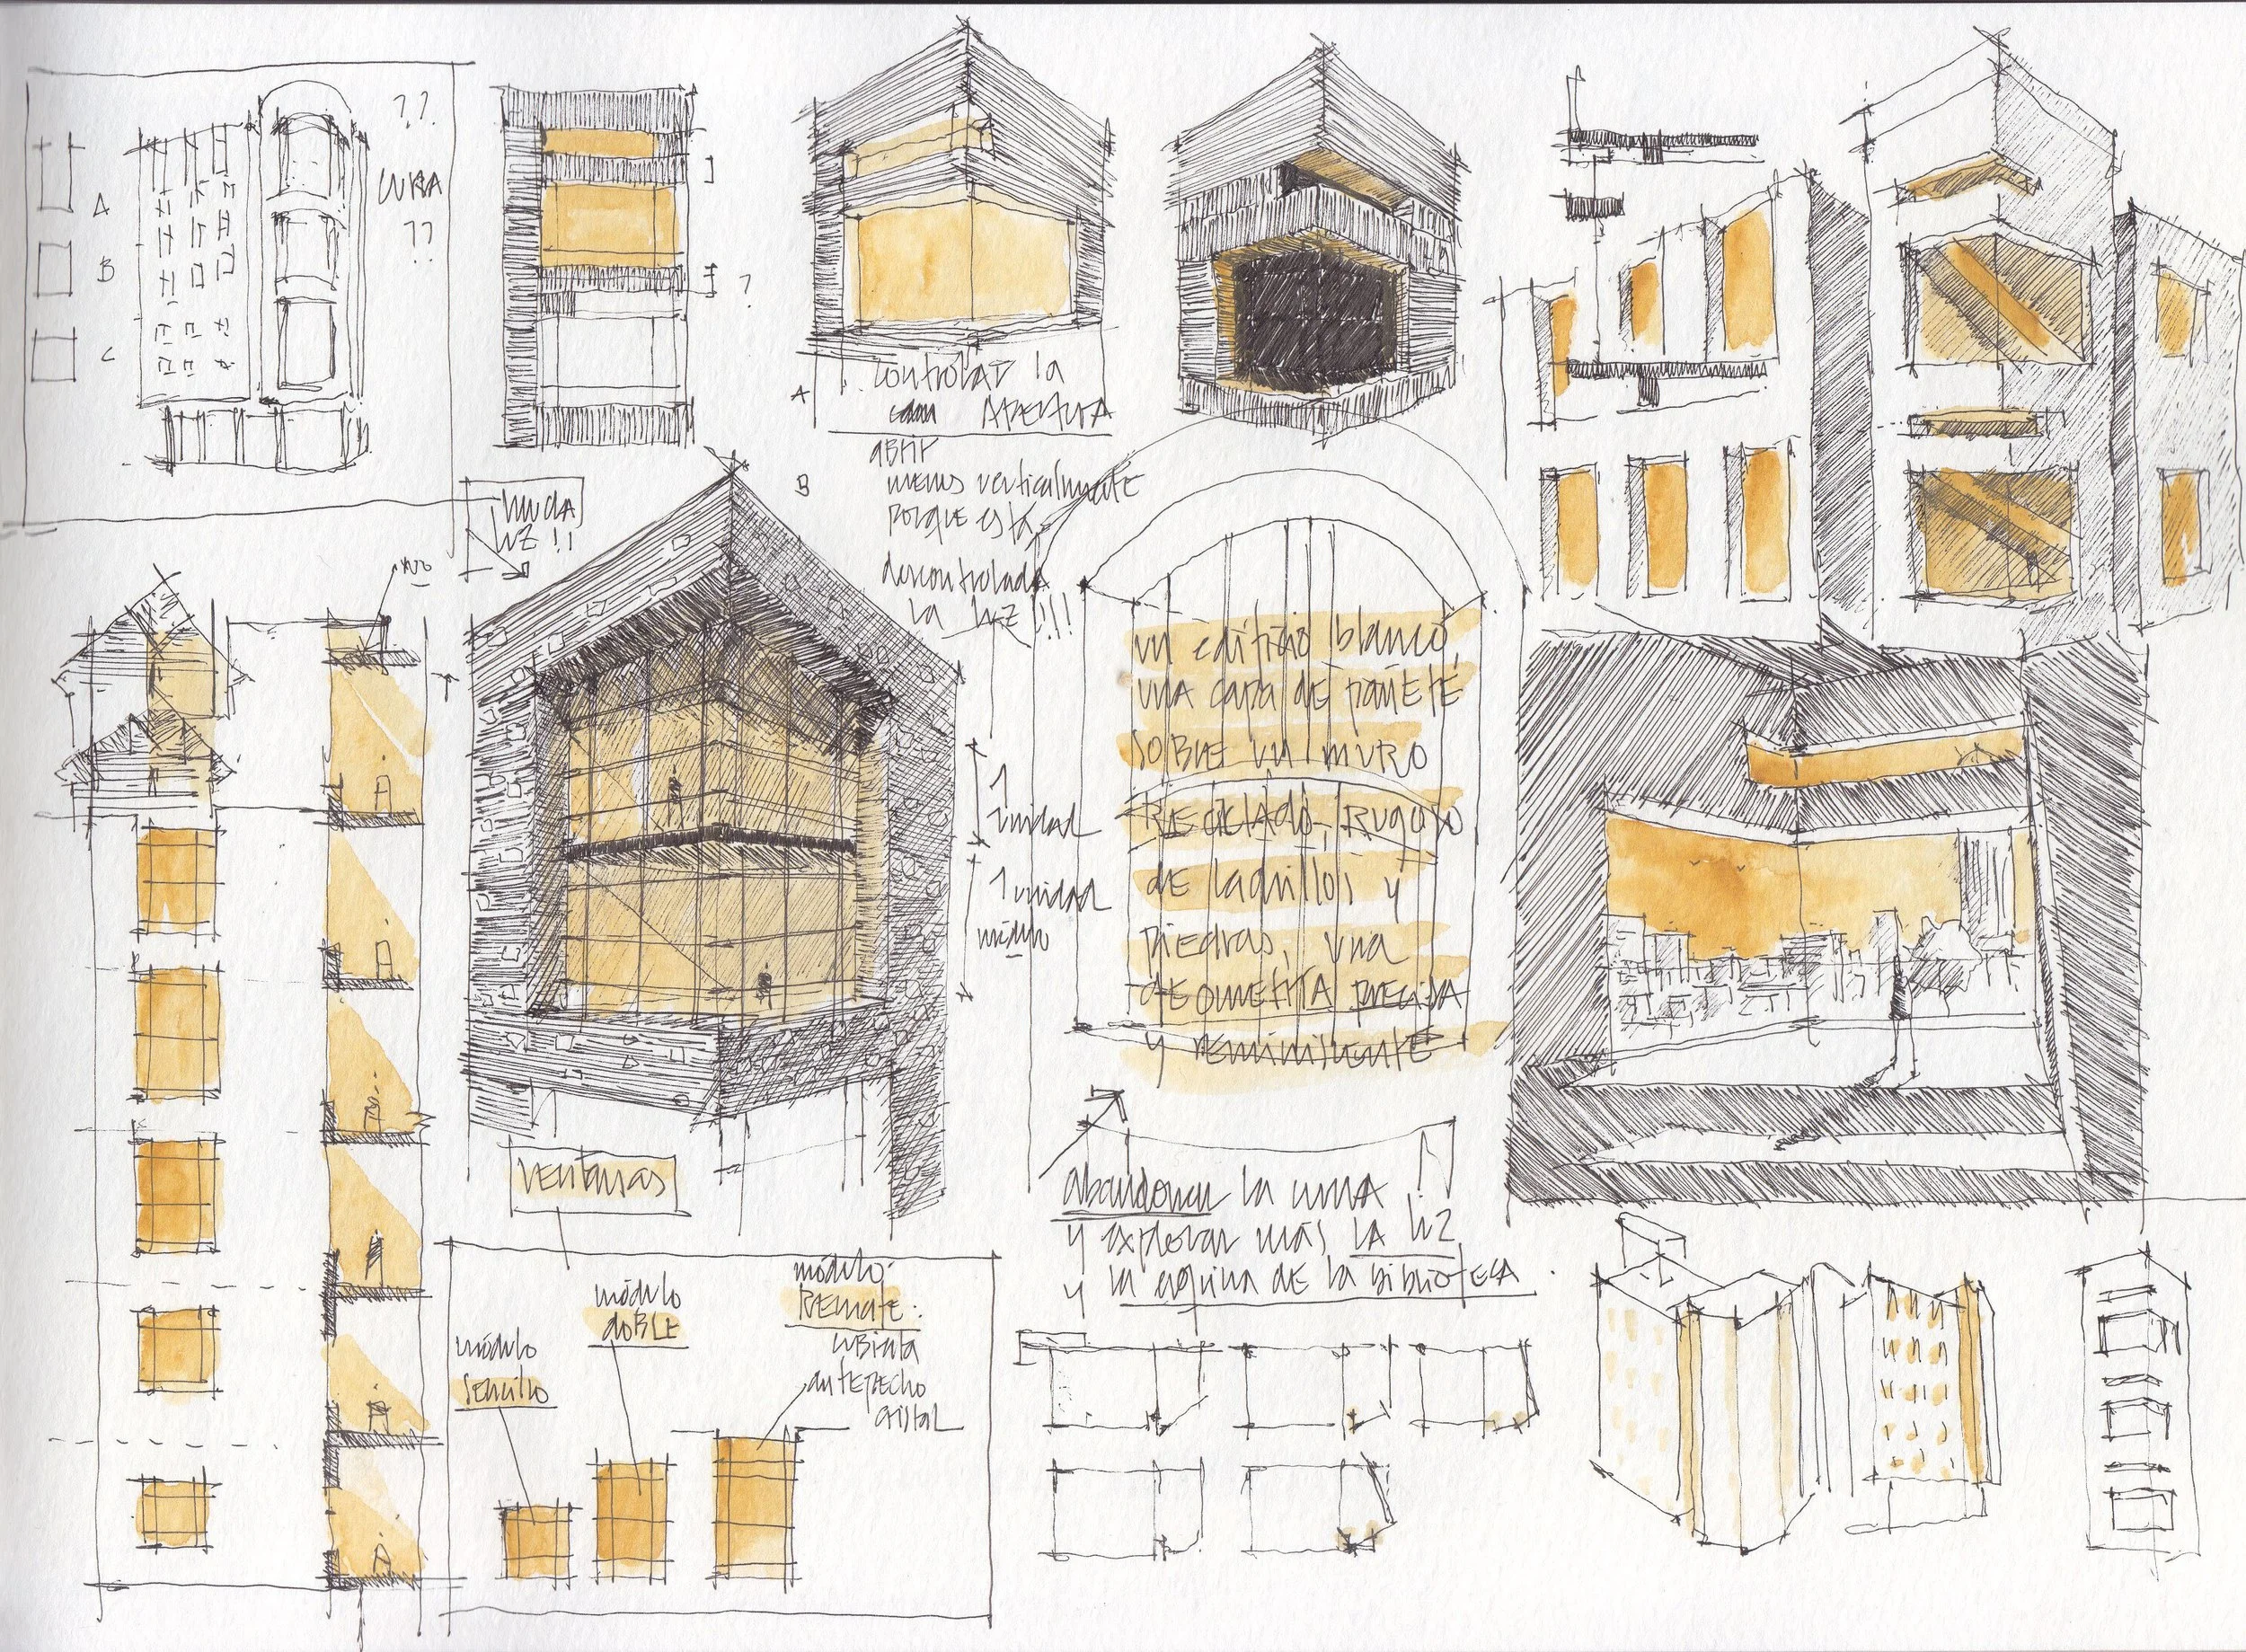 ??
CURVA
??
A
B
C
?
A
controlar la
APERTURA
B
abrir
menos verticalmente
porque está
descontrolada
la luz!!!
mucha
luz!!
no
1
unidad
1 unidad
módulo
un edificio blanco,
una capa de pañete
sobre un muro
reciclado, rugoso
de ladrillos y
piedras, una
geometría precisa
y reminiscente
ventanas
abandonar la curva
y explorar más la luz
y la esquina de la biblioteca.
módulo
sencillo
módulo
doble
módulo
remate:
cubierta
antepecho
cristal